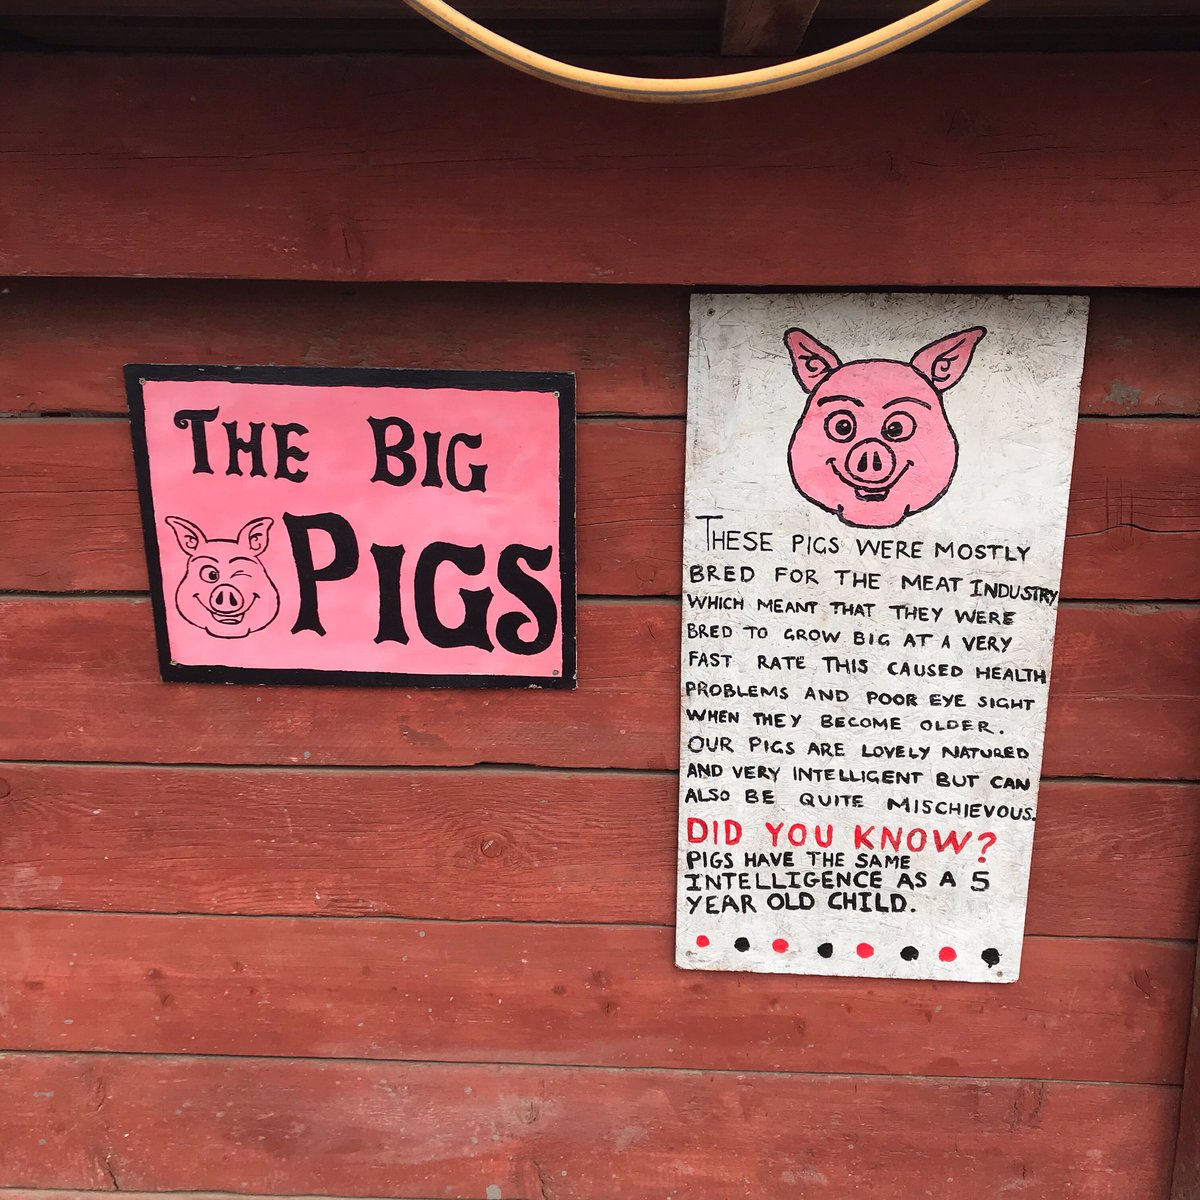 THE BIG
PIGS
THESE PIGS WERE MOSTLY
BRED FOR THE MEAT INDUSTRY
WHICH MEANT THAT THEY WERE
BRED TO GROW BIG AT A VERY
FAST RATE THIS CAUSED HEALTH
PROBLEMS AND POOR EYE SIGHT
WHEN THEY BECOME OLDER.
OUR PIGS ARE LOVELY NATURED
AND VERY INTELLIGENT BUT CAN
ALSO BE QUITE MISCHIEVOUS.
DID YOU KNOW?
PIGS HAVE THE SAME
INTELLIGENCE AS A 5
YEAR OLD CHILD.